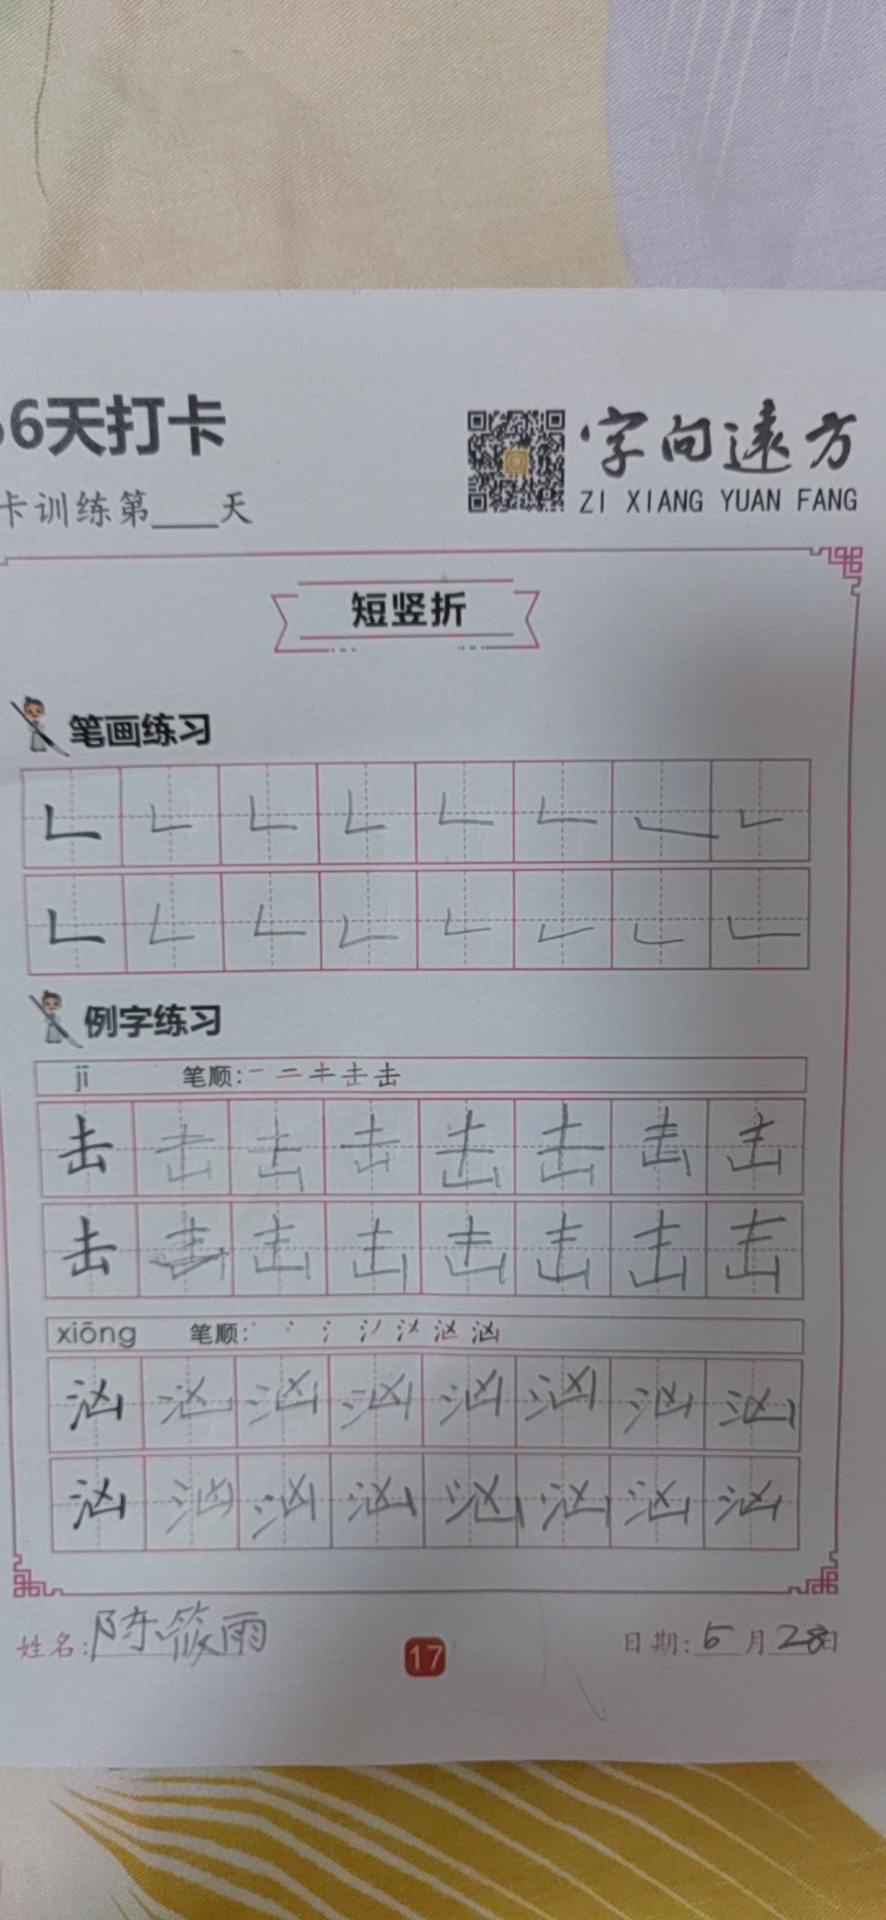 66天打卡
字向遠方
卡训练第____天
ZI XIANG YUAN FANG
短竖折
笔画练习
例字练习
jī 笔顺:
击 击 击 击 击 击 击 击
击 击 击 击 击 击 击 击
xiōng 笔顺:
汹 汹 汹 汹 汹 汹 汹 汹
汹 汹 汹 汹 汹 汹 汹 汹
姓名:陈筱雨 17 日期:5月28日